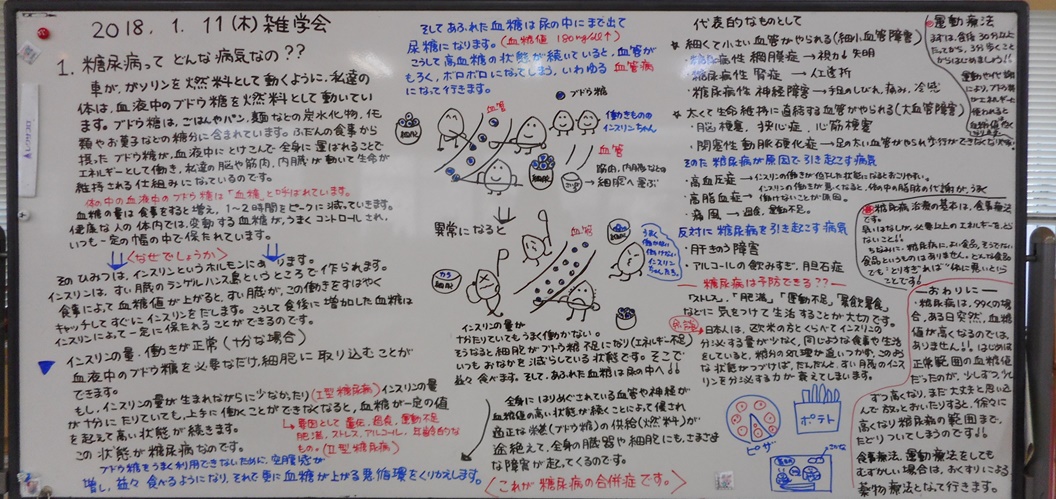 2018. 1. 11(木) 雑学会
1. 糖尿病って どんな病気なの??
車が、ガソリンを燃料として動くように、私達の
体は、血液中のブドウ糖を燃料として動いてい
ます。ブドウ糖は、ごはんやパン、麺などの炭水化物、化
類やお菓子などの糖分に含まれています。ふだんの食事から
摂ったブドウ糖が、血液中にとけこんで全身に運ばれることで
エネルギーとして働き、私達の脳や筋肉、内臓が動いて生命が
維持される仕組みになっているのです。
体の中の血液中のブドウ糖は「血糖」と呼ばれています。
血糖の量は食事をすると増え、1~2時間をピークに減っていきます。
健康な人の体内では、変動する血糖が、うまくコントロールされ、
いつも一定の幅の中で保たれています。
<なぜでしょうか>
そのひみつは、インスリンというホルモンにあります。
インスリンは、すい臓のランゲルハンス島というところで作られます。
食事によって血糖値が上がると、すい臓が、この働きをすばやく
キャッチしてすぐにインスリンをだします。こうして食後に増加した血糖は
インスリンによって一定に保たれることができるのです。
インスリンの量・働きが正常(十分な場合)
血液中のブドウ糖を必要なだけ、細胞に取り込むことが
できます。
もし、インスリンが生まれながらに少なかったり(I型糖尿病)インスリンの量
が十分にたりていても、上手に働くことができなくなると、血糖が一定の値
を超えて高い状態が続きます。
この状態が糖尿病なのです。
要因として 遺伝、過食、運動不足
肥満、ストレス、アルコール、年齢的な
もの。(II型糖尿病)
ブドウ糖をうまく利用できないために、空腹感が
増し、益々食べるようになり、それで更に血糖が上がる悪循環をくりかえします。
そしてあふれた血糖は尿の中にまで出て
尿糖になります。(血糖値 180mg/dl↑)
こうして高血糖の状態が続いていると、血管が
もろく、ボロボロになってしまう、いわゆる血管病
になって行きます。
ブドウ糖
血管
働きもの
インスリンちゃん
血管
筋肉、内臓などの
細胞へ運ぶ
異常になると
血管
カラ
うまく
働かない
働けない
インスリン
ちゃんたち。
インスリンの量が
十分たりていてもうまく働かない。
そうなると細胞がブドウ糖不足になり(エネルギー不足)
いつもおなかを減らしている状態です。そこで
益々食べます。そして、あふれた血糖は尿の中へ!!
全身にはりめぐされている血管や神経が
血糖値の高い状態が続くことによって侵され
適正な栄養(ブドウ糖)の供給(燃料)が
途絶えて、全身の臓器や細胞にも、さまざま
な障害が起ってくるのです。
<これが糖尿病の合併症です。>
代表的なものとして
★ 細くて小さい血管がやられる(細小血管障害)
・糖尿病性網膜症→視力↓失明
・糖尿病性腎症→人工透析
・糖尿病性神経障害→手足のしびれ、痛み、冷感
★ 太くて生命維持に直結する血管がやられる(大血管障害)
・脳梗塞、狭心症、心筋梗塞
・閉塞性動脈硬化症→足の太い血管がやられ歩行ができなくなり
そのた 糖尿病が原因で引き起こす病気
・高血圧症→インスリンの働きが低下した状態になるとおりやすい。
・高脂血症→インスリンの働きが悪くなると、体の中の脂肪の代謝が、うまく
働けないことが原因。
・痛風→過食、運動不足。
反対に糖尿病を引き起こす病気
・肝きのう障害
・アルコールの飲みすぎ、胆石症
― 糖尿病は予防できる?? ―
「ストレス」、「肥満」、「運動不足」、「暴飲暴食」
などに気をつけて生活することが大切です。
日本人は、欧米の方とくらべてインスリンの
分泌する量が少なく、同じような食事や生活
をしていると、糖分の処理が追いつかず、このよう
な状態がつづけば、だんだんと、すい臓のインス
リンを分泌する力が衰えてしまいます。
ピザ
ポテト
●運動療法
まずは、食後30分以上
たってから、3分歩くこと
からはじめましょう!!
●糖尿病治療の基本は、食事療法
です。
―おわりに―
・糖尿病は、多くの場
合、ある日突然、血糖
値が高くなるのでは、
ありません!! はじめは
正常範囲の血糖値
だったのが、少しずつ少し
ずつ高くなり、まだ大丈夫と思い込
んで放っとおいたりすると、徐々に
高くなり糖尿病の範囲まで、
たどりついてしまうのです!!
食事療法、運動療法をしても
むずかしい場合は、おくすりによる
薬物療法となって行きます。